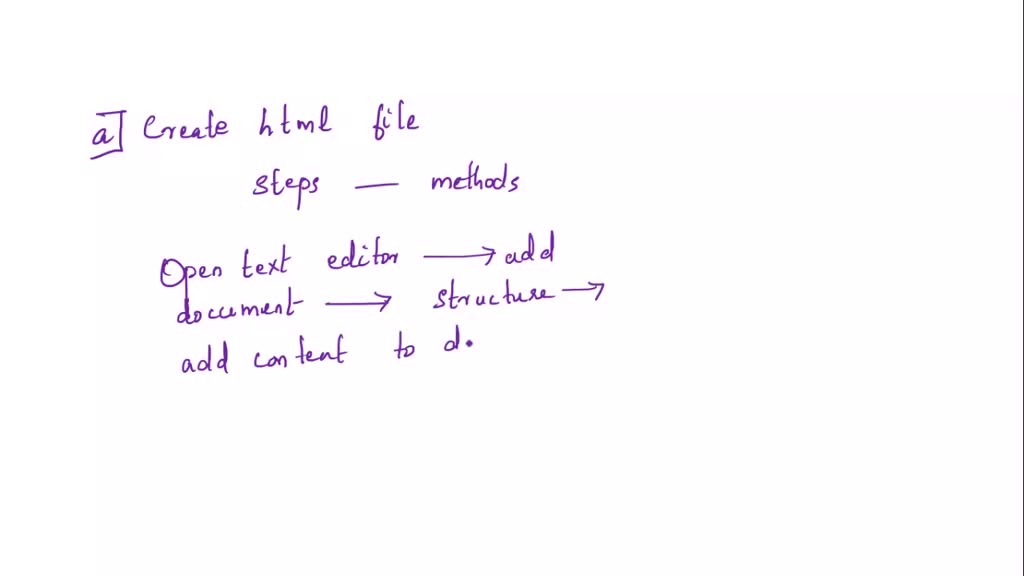 a] Create html file
steps — methods
Open text editor → add
document → structure →
add content to d.